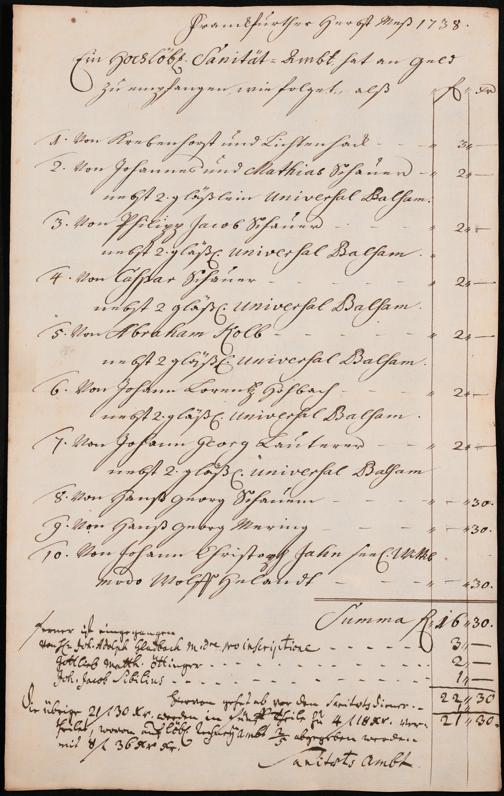 Franckfurther Herbst Mess 1738.
Ein Hochlöbl. Sanität-Ambt, hat an Geld
zu empfangen, wie folget, alß
fl Xr
1. Von Krebenhorst und Lichtenhad - - " 3 " —
2. Von Johannes und Mathias Schauer - " 2 " —
nebst 2. gläßlein Universal Balsam.
3. Von Philipp Jacob Schauer - - - " 2 " —
nebst 2. gläßl. Universal Balsam.
4. Von Caspar Schauer - - - - " 2 " —
nebst 2 gläßl. Universal Balsam.
5. Von Abraham Kolb - - - - " 2 " —
nebst 2 gläßl. Universal Balsam.
6. Von Johann Lorentz - - - " 2 " —
nebst 2. gläßl. Universal Balsam.
7. Von Johann Georg Lauterer - - " 2 " —
nebst 2. gläßl. Universal Balsam
8. Von Hanß Georg Schauern - - - " - " 30.
9. Von Hanß Georg Mering - - - " - " 30.
10. Von Johann Christoph Jahn seel. Wittib
modo Wolff Helandt - - - " - " 30.
Summa fl. 16 " 30.
ferner ist eingegangen
von H. Joh. Adolph pro inscriptione - - - 3 —
Gottlieb Matth. Öttinger - - - 2 —
Joh. Jacob Sibilius - - - 1 —
22 " 30
hiervon gehet ab vor den Sanitätsdiener - 1 —
21 " 30.
Die übrige 21 f 30 Xr. werden in fünff Theile zu 4 f 18 Xr. ver-
theilet, wovon auf löbl. Ambt 2/5 abgegeben werden
mit 8 f. 36 Xr.
Sanitäts Ambt.